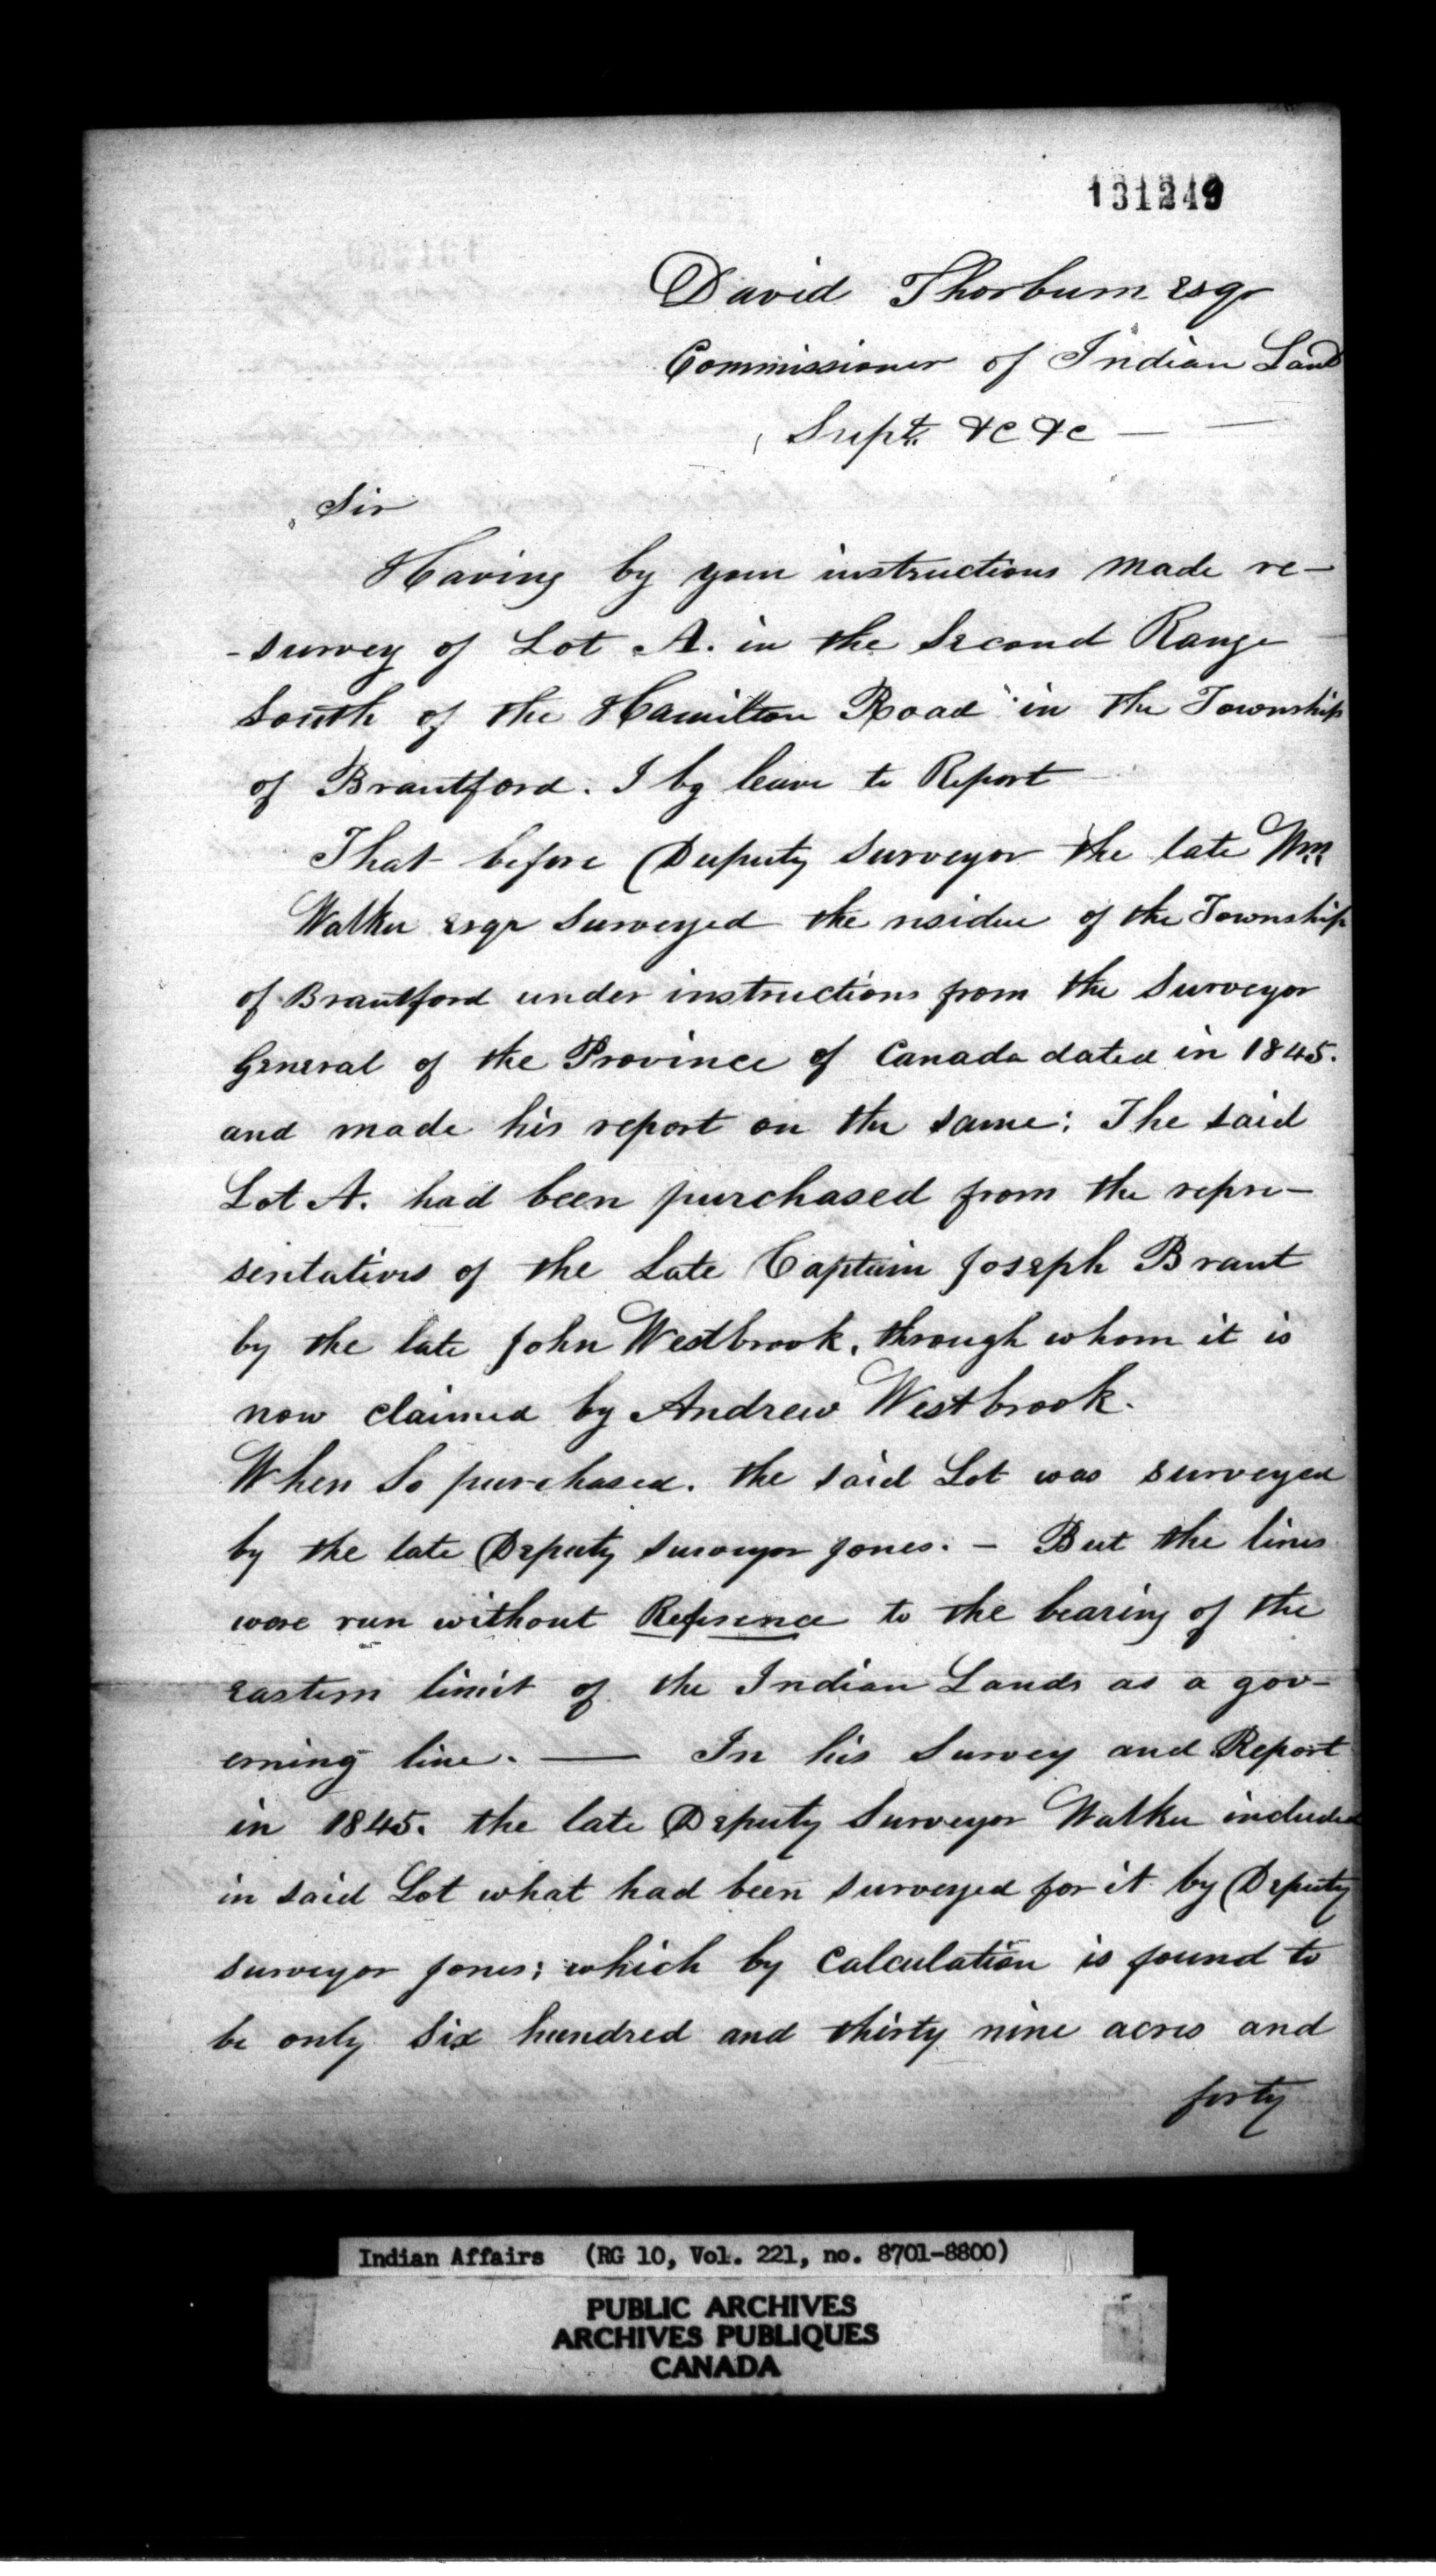 131249
David Thorburn Esqr
Commissioner of Indian Land
Supt. &c &c —  —
Sir
Having by your instructions made re-
-survey of Lot A. in the Second Range
South of the Hamilton Road in the Township
of Brantford. I beg leave to Report
That before Deputy Surveyor the late Wm.
Walker Esqr Surveyed the residue of the Township
of Brantford under instructions from the Surveyor
General of the Province of Canada dated in 1845.
and made his report on the same; The said
Lot A. had been purchased from the repre-
sentatives of the Late Captain Joseph Brant
by the late John Westbrook, through whom it is
now claimed by Andrew Westbrook.
When So purchased. the said Lot was surveyed
by the late Deputy Surveyor Jones. - But the lines
were run without Reference to the bearing of the
Eastern limit of the Indian Lands as a gov-
erning line. — In his Survey and Report
in 1845. the late Deputy Surveyor Walker included
in said Lot what had been surveyed for it by Deputy
surveyor Jones; which by Calculation is found to
be only Six hundred and thirty nine acres and
forty
Indian Affairs (RG 10, Vol. 221, no. 8701-8800)
PUBLIC ARCHIVES
ARCHIVES PUBLIQUES
CANADA